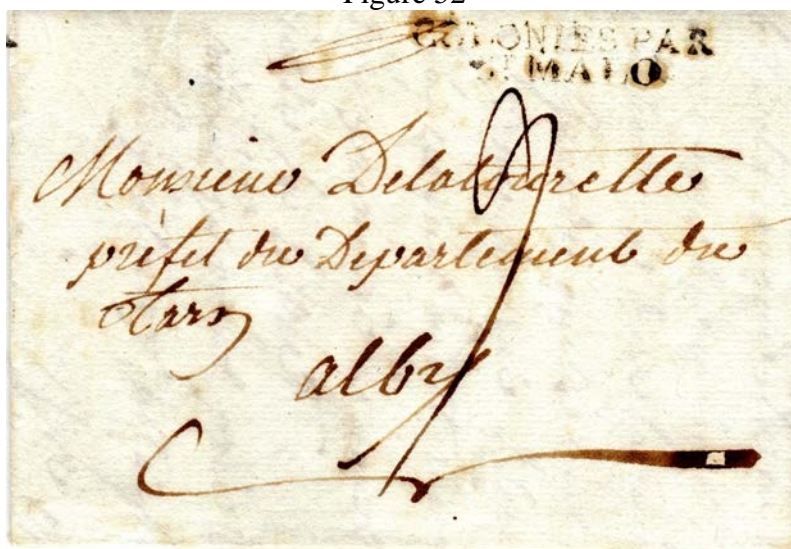 Figure 32
COLONIES PAR
ST MALO
Monsieur Delatourette
préfet du Departement du
Tarn
alby
9